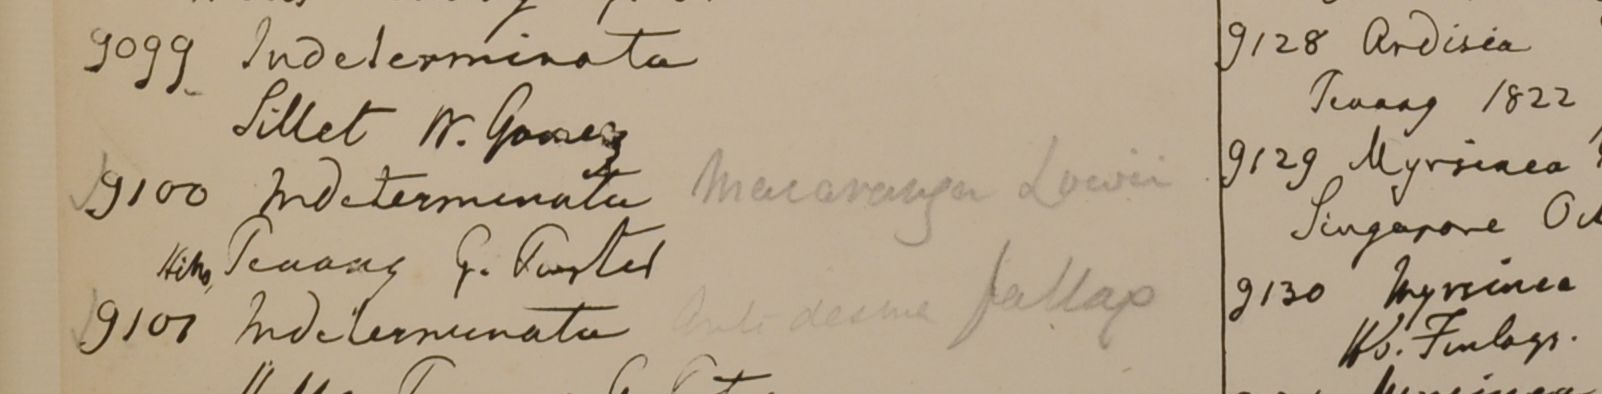 9099 Indeterminata
Sillet W. Gomez
9100 Indeterminata Macaranga Lowii
Penang G. Porter
9101 Indeterminata Antidesma fallax
9128 Ardisia
Penang 1822
9129 Myrsinea
Singapore
9130 Myrsinea
Hb. Finlays.